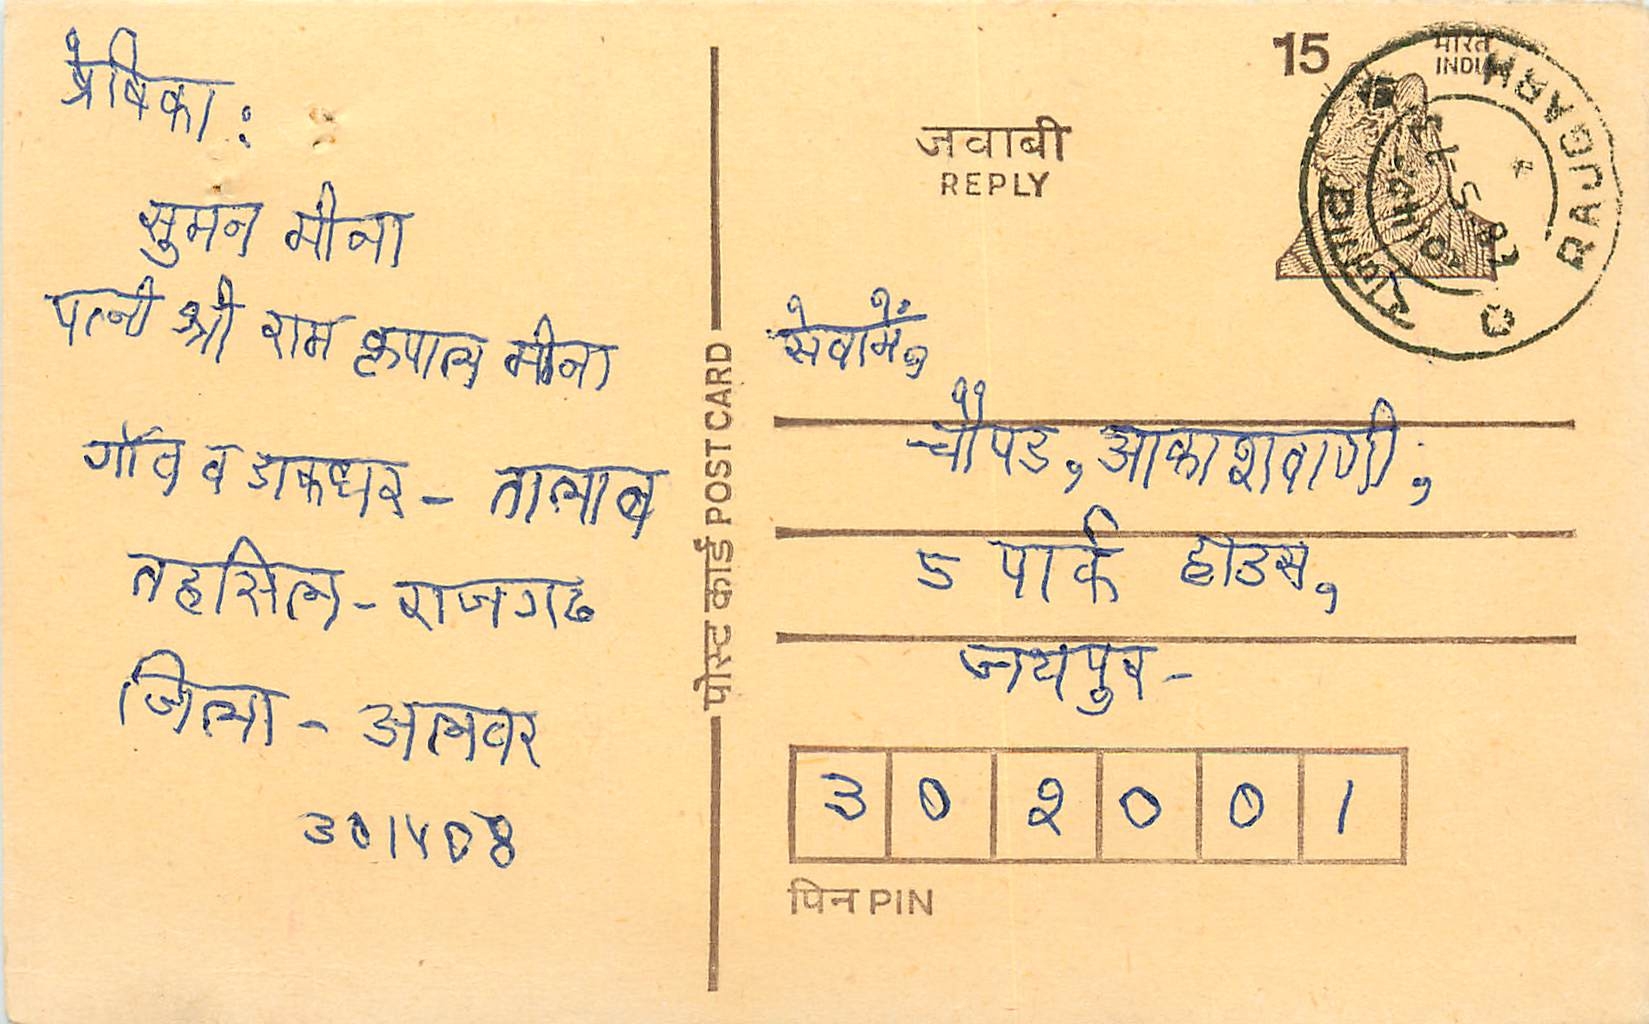 प्रेषिका :
सुमन मीना
पत्नी श्री राम कृपाल मीना
गाँव व डाकघर - तालाब
तहसिल - राजगढ
जिला - अलवर
301408
पोस्ट कार्ड POST CARD
15
भारत
INDIA
जवाबी
REPLY
RAJGARH
सेवामें,
चौपड, आकाशवाणी,
5 पार्क हाउस,
जयपुर -
302001
पिन PIN